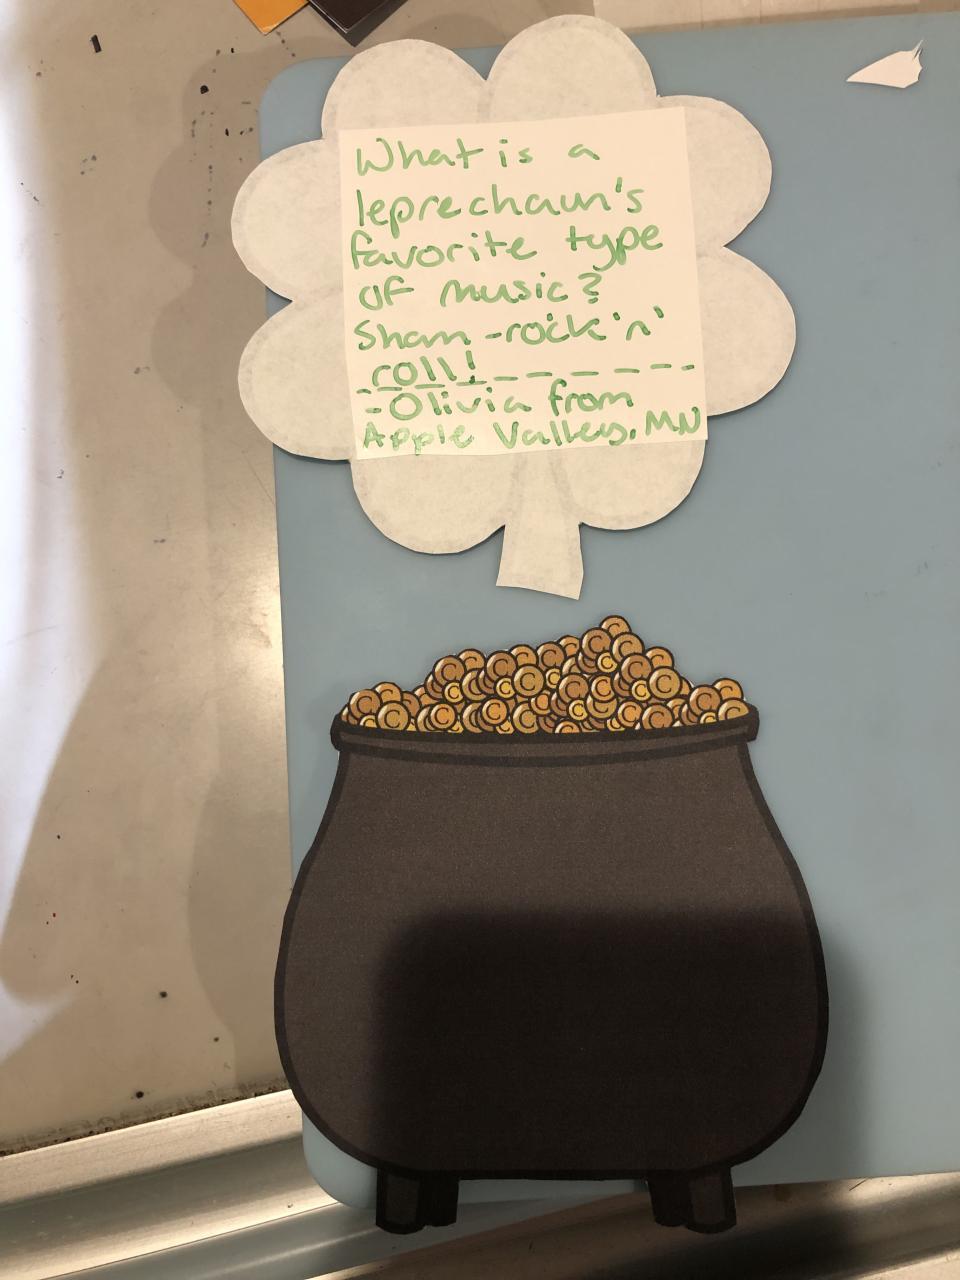 What is a
leprechaun's
favorite type
of music?
Sham-rock 'n'
roll!
-Olivia from
Apple Valley, MN